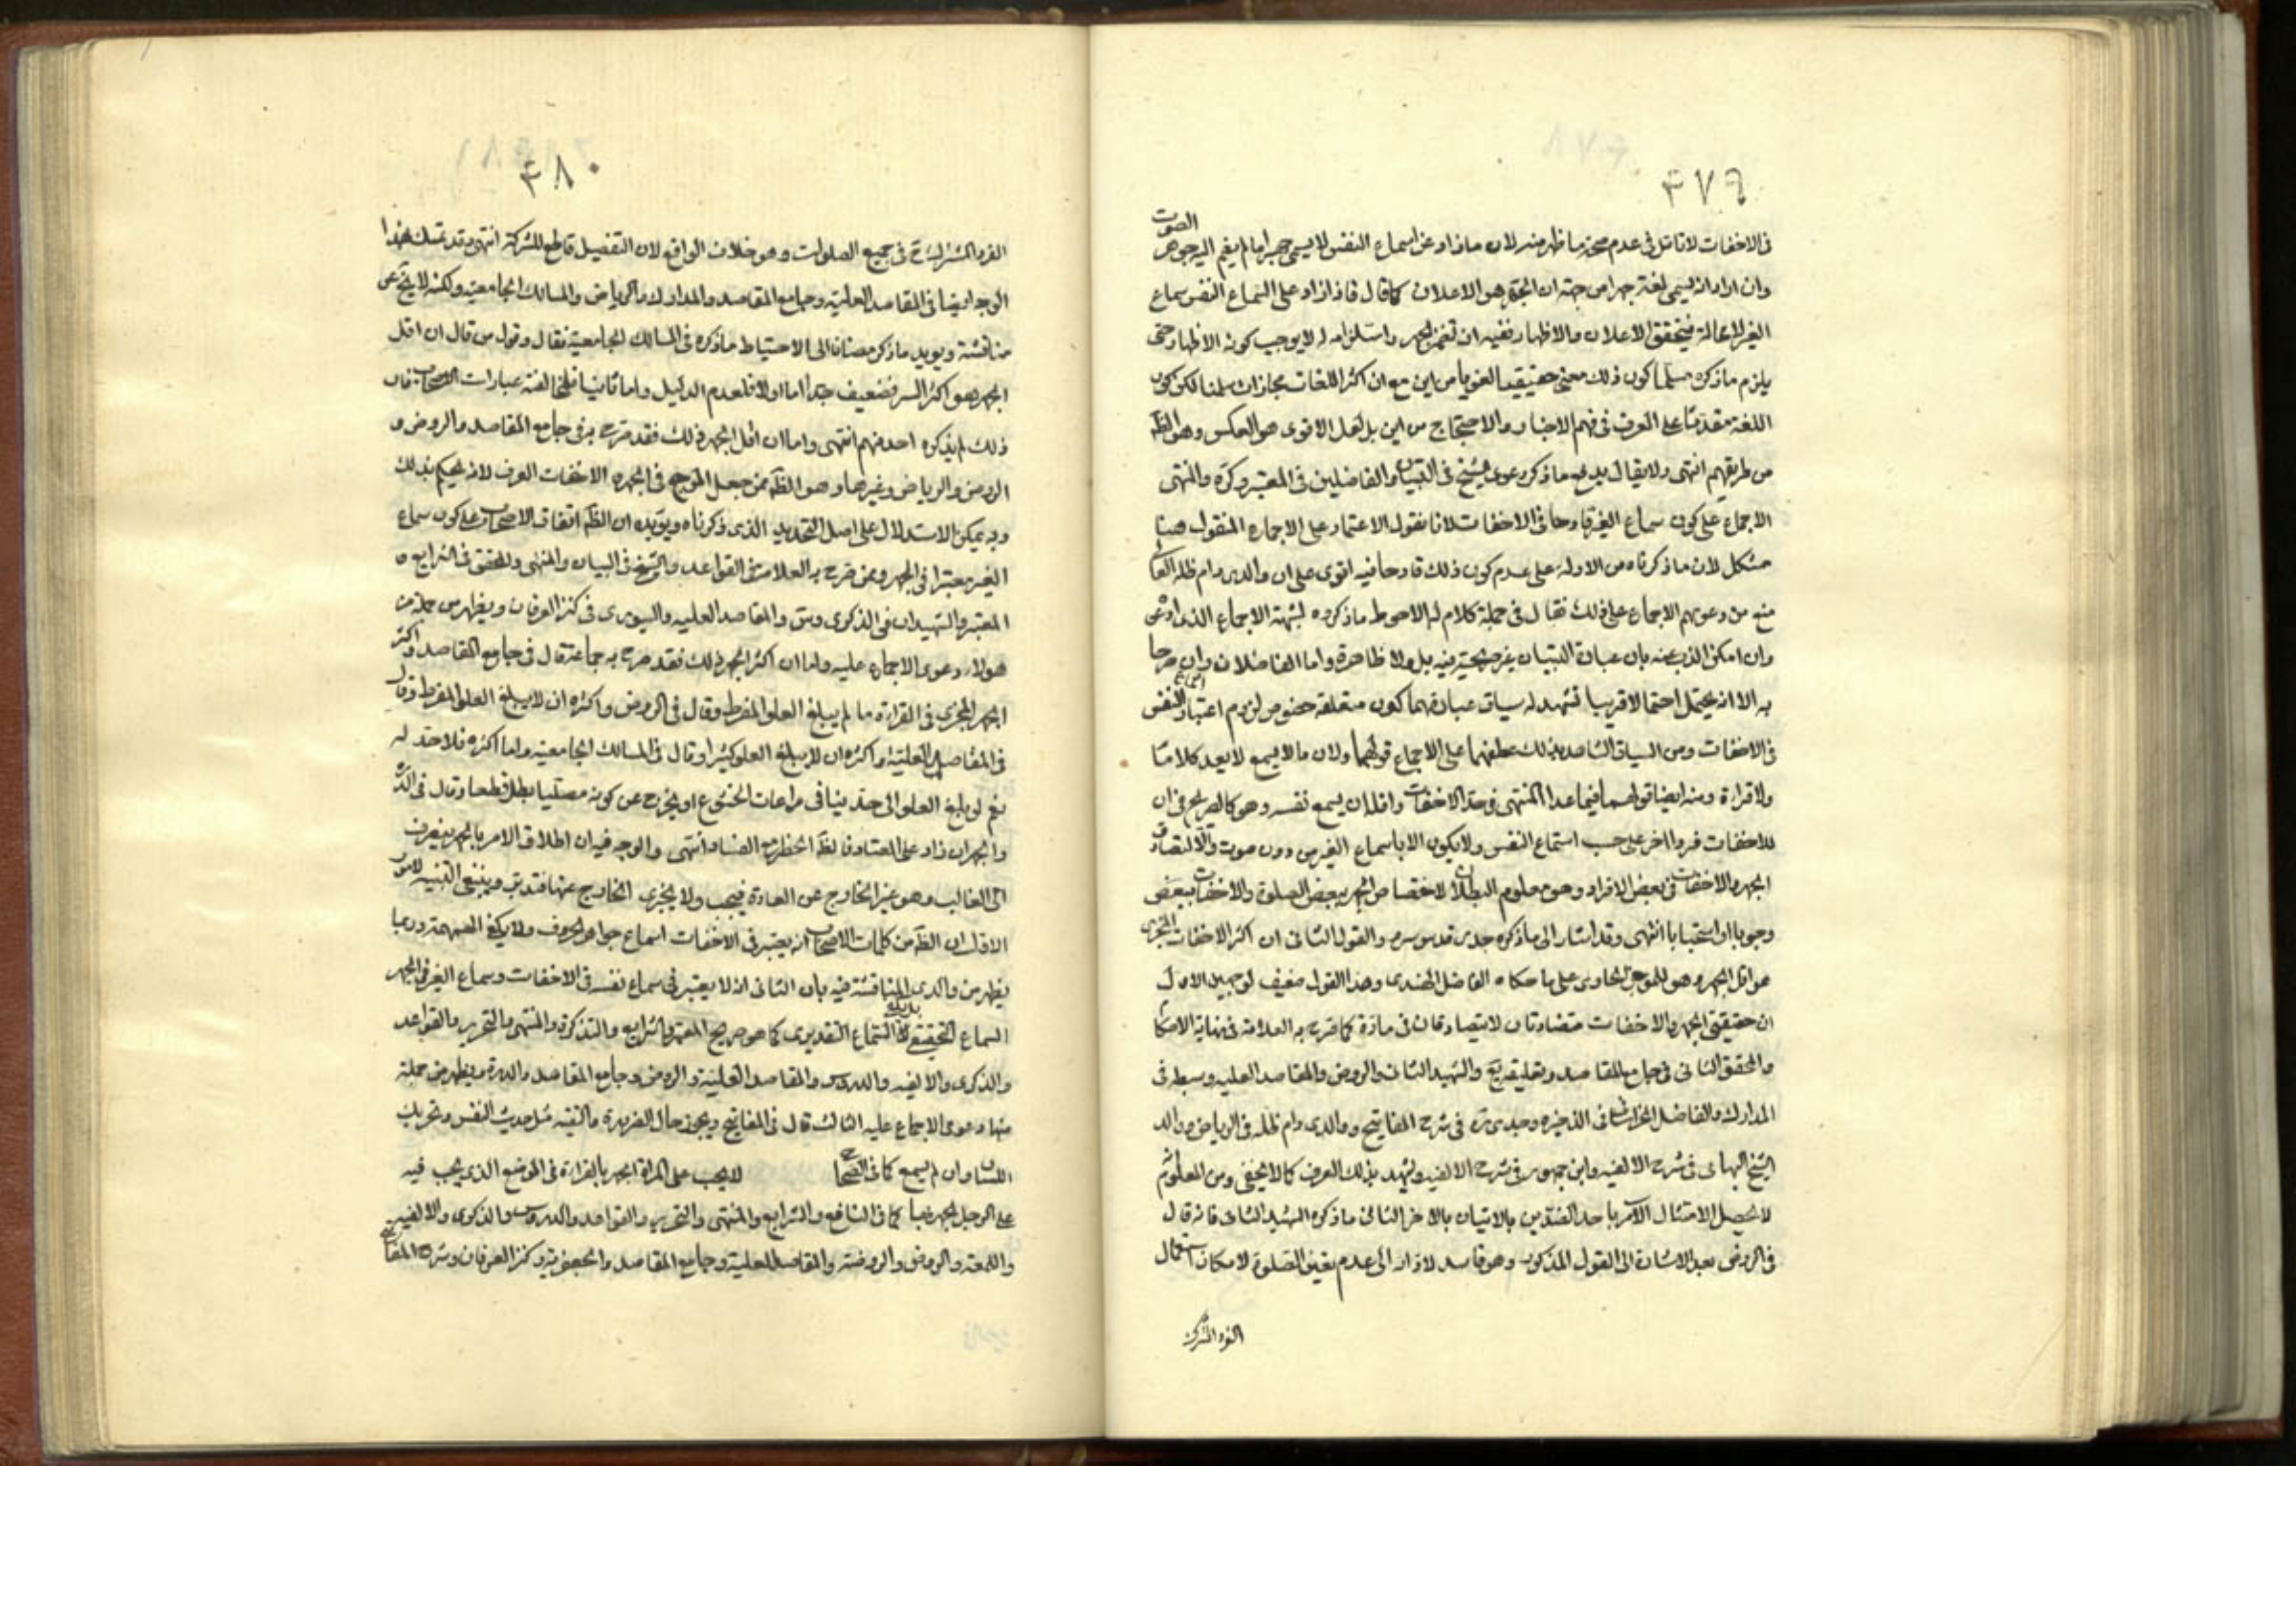 ٤٧٩
الصوت
فى الاخفات لانا نتامل فى عدم صحة ما ظهر منه لان ما زاد عن اسماع النفس لا يسمى جهرا ما لم ينضم اليه جوهر
وان اراد انه يسمى لغة جهرا من جهة ان الجهر هو الاعلان كما قال فاذا زاد على اسماع النفس سماع
الغير لا محالة فيتحقق الاعلان والاظهار ففيه ان واستلزامه له لا يوجب كونه الاظهار حتى
يلزم ما ذكره مسلما كون ذلك معنى حقيقيا لغويا من اين مع ان اكثر اللغات مجازات سلمنا لكن كون
اللغة مقدما على العرف فى فهم الاخبار والاحتجاج من اين بل لعل الاقوى هو العكس وهو الظ
من طريقهم انتهى ولا يقال يدفع ما ذكر دعوى الشيخ فى التبيان والفاضلين فى المعتبر وكره والمنتهى
الاجماع على كون سماع الغير قادحا فى الاخفات لانا نقول الاعتماد على الاجماع المنقول هنا
مشكل لان ما ذكرناه من الادلة على عدم كون ذلك قادحا فيه اقوى على ان والدى دام ظله العا
منع من دعويهم الاجماع على ذلك فقال فى جملة كلام له الاحوط ما ذكروه لشبهة الاجماع الذى ادعى
وان امكن الذب عنه بان عبارة التبيان غير صريحة فيه بل ولا ظاهرة واما الفاضلان وان صرحا
به الا انه يحتمل احتمالا قريبا تشهد له سياق عبارتهما كون متعلقه خصوص لزوم اعتبار اسماع النفس
فى الاخفات ومن السياق الشاهد بذلك عطفهما على الاجماع قولهما ولان ما لا يسمع لا يعد كلاما
ولا قراءة ومنه ايضا قولهما فيما عدا المنتهى فى حد الاخفات واقله ان يسمع نفسه وهو كالصريح فى ان
للاخفات فردا اخر على حسب استماع النفس ولا يكون الا باسماع الغير من دون صوت والا لتصادق
الجهر والاخفات فى بعض الافراد وهو معلوم البطلان لاختصاص الجهر ببعض الصلوة والاخفات ببعض
وجوبا او استحبابا انتهى وقد اشار الى ما ذكره جدى قدس سره والقول الثانى ان اكثر الاخفات المجزى
هو اقل الجهر وهو للموجز الحاوى على ما حكاه الفاضل الهندى وهذا القول ضعيف لوجهين الاول
ان حقيقتى الجهر والاخفات متضادتان لا يتصادقان فى مادة كما صرح به العلامة فى نهاية الاحكام
والمحقق الثانى فى جامع المقاصد وتعليقه يع والشهيد الثانى والروض والمقاصد العليه وسبطه فى
المدارك والفاضل الخراسانى فى الذخيره وجدى ره فى شرح المفاتيح ووالدى دام ظله فى الرياض ووالد
الشيخ البهائى فى شرح الالفيه وابن جمهور فى شرح الالفيه ويشهد بذلك العرف كما لا يخفى ومن المعلوم
لا يحصل الامتثال الامر باحد الضدين بالاتيان بالاخر الثانى ما ذكره الشهيد الثانى فانه قال
فى الروض بعد الاشارة الى القول المذكور وهو فاسد لادائه الى عدم تعين الصلوة لامكان استعمال
الفرد المشترك
٤٨٠
الفرد المشترك فى جميع الصلوات وهو خلاف الواقع لان التفصيل قاطع للشركة انتهى وقد تمسك بهذا
الوجه ايضا فى المقاصد العلية وجامع المقاصد والمدارك والرياض والمسالك الجامعية ولكنه لا يخ عن
مناقشة ويويد ما ذكر مضافا الى الاحتياط ما ذكره فى المسالك الجامعية فقال وقول من قال ان اقل
الجهر هو اكثر السر فضعيف جدا اما اولا فلعدم الدليل واما ثانيا فلمخالفة عبارات الاصحاب فان
ذلك لم يذكره احد منهم انتهى واما ان اقل الجهر ذلك فقد صرح به فى جامع المقاصد والروض و
الروض والرياض وغيرها وهو الظ ممن جعل المرجع فى الجهر و الاخفات العرف لانه يحكم بذلك
وبه يمكن الاستدلال على اصل التحديد الذى ذكرناه ويويده ان الظ اتفاق الاصحاب على كون سماع
الغير معتبرا فى الجهر وممن صرح به العلامة فى القواعد والشيخ فى التبيان والمنتهى والمحقق فى الشرايع و
المعتبر والشهيدان فى الذكرى وس والمقاصد العليه والسيورى فى كنز العرفان ويظهر من جملة من
هولاء دعوى الاجماع عليه واما ان اكثر الجهر ذلك فقد صرح به جماعة قال فى جامع المقاصد واكثر
الجهر المجزى فى القراءة ما لم يبلغ العلو المفرط وقال فى الروض واكثره ان لا يبلغ العلو المفرط وقال
فى المقاصد العلية واكثره ان لا يبلغ العلو كثيرا وقال فى المسالك الجامعية واما اكثره فلا حد له
نعم لو بلغ العلو الى حد ينافى مراعات الخشوع او يخرج عن كونه مصليا بطل قطعا وقال فى
والجهر ان زاد على المعتاد فالظ الحظر مع الفساد انتهى والوجه فيه ان اطلاق الامر بالجهر ينصرف
الى الغالب وهو غير الخارج عن العادة فيجب ولا يجزى الخارج عنها فتدبر وينبغى التنبيه لامور
الاول ان الظ من كلمات الاصحاب انه يعتبر فى الاخفات اسماع جواهر الحروف ولا يكفى الهمهمة وربما
يظهر من والدى المناقشة فيه بان الثانى انه لا يعتبر فى سماع نفسه فى الاخفات وسماع الغير فى الجهر
السماع الحقيقى بل يكفى السماع التقديرى كما هو صريح المعتبر والشرايع والتذكرة والمنتهى والتحرير والقواعد
والذكرى والالفيه والدروس والمقاصد العلية والروض وجامع المقاصد والدرة ويظهر من جملة
منها دعوى الاجماع عليه الثالث قال فى المفاتيح ويجوز حال الضرورة والتقيه مثل حديث النفس وتحريك
اللسان وان لم يسمع كما فى الصحاح لا يجب على المراة الجهر بالقراءة فى الموضع الذى يجب فيه
على الرجل الجهر فيها كما فى النافع والشرايع والمنتهى والتحرير والقواعد والدروس والذكرى والالفيه
واللمعة والروض والروضة والمقاصد العلية وجامع المقاصد والجعفرية وكنز العرفان وشرح المفاتيح